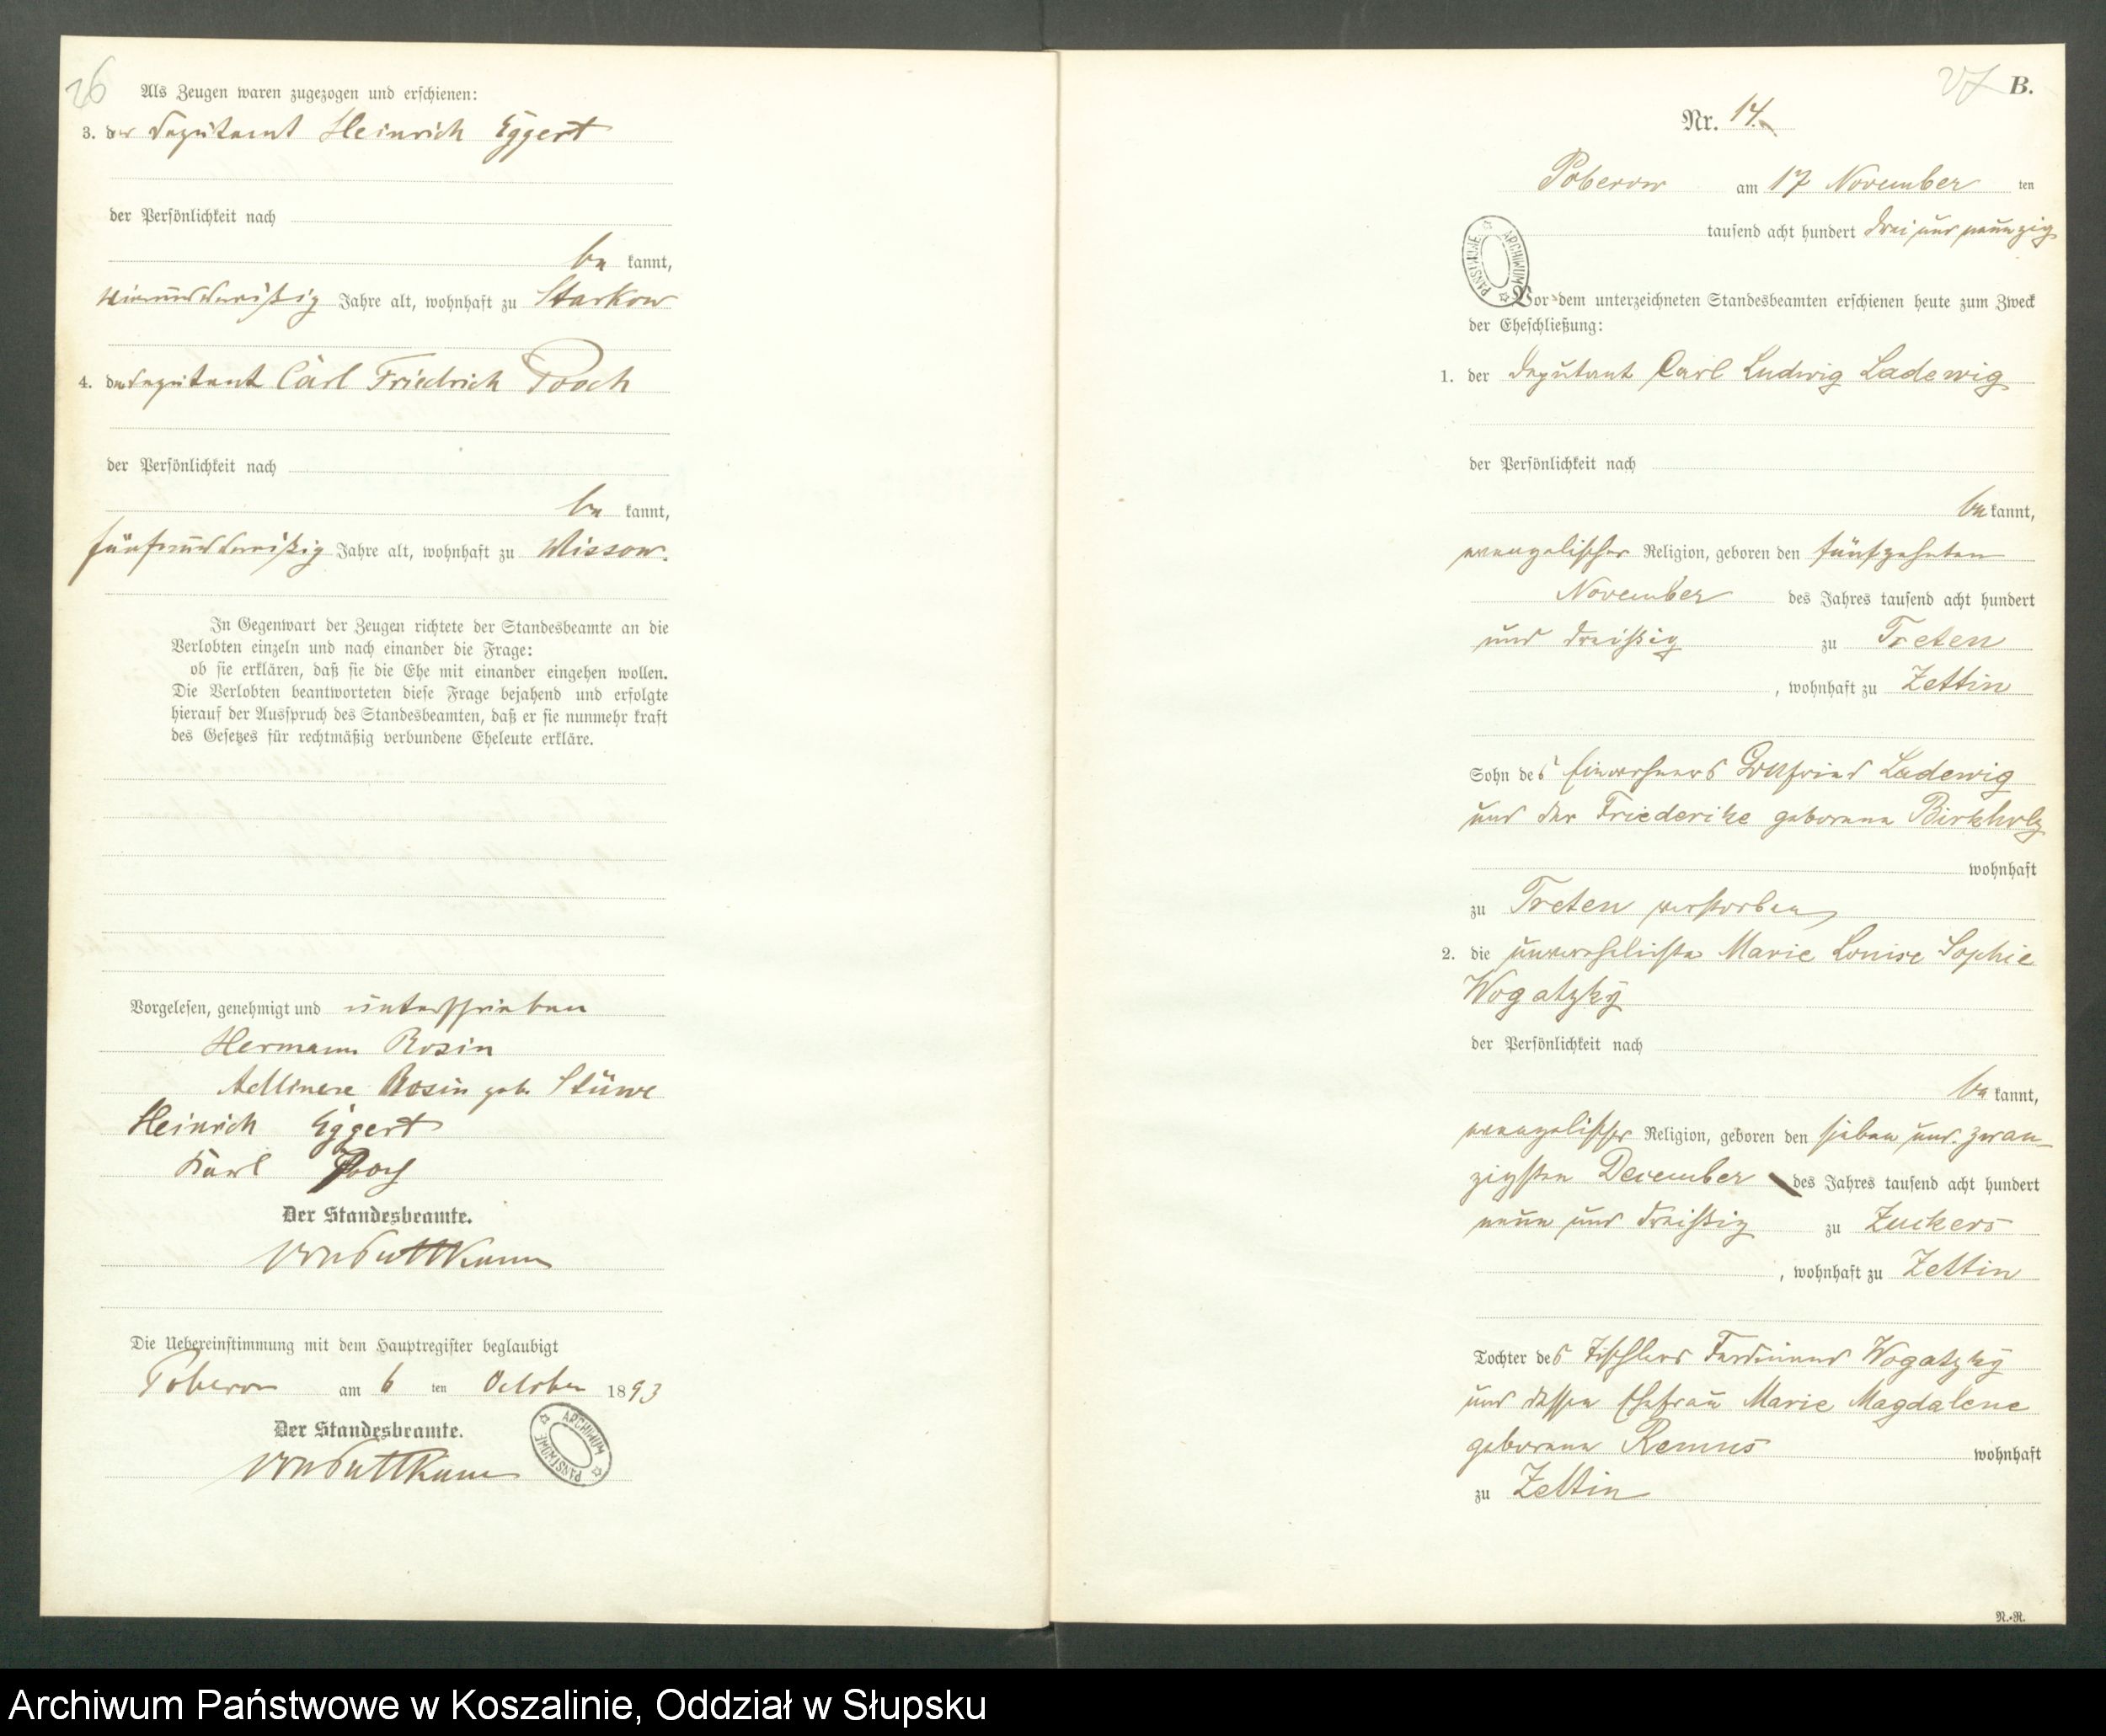 26
Als Zeugen waren zugezogen und erschienen:
3. der Deputant Heinrich Eggert
der Persönlichkeit nach
be kannt,
Jahre alt, wohnhaft zu Starkow
4. der Deputant Carl Friedrich Pooch
der Persönlichkeit nach
be kannt,
fünfunddreißig Jahre alt, wohnhaft zu Wissow.
In Gegenwart der Zeugen richtete der Standesbeamte an die
Verlobten einzeln und nach einander die Frage:
ob sie erklären, daß sie die Ehe mit einander eingehen wollen.
Die Verlobten beantworteten diese Frage bejahend und erfolgte
hierauf der Ausspruch des Standesbeamten, daß er sie nunmehr kraft
des Gesetzes für rechtmäßig verbundene Eheleute erkläre.
Vorgelesen, genehmigt und unterschrieben
Hermann Rosin
Rosin geb. Stüwe
Heinrich Eggert
Karl Pooch
Der Standesbeamte.
von Puttkamer
Die Uebereinstimmung mit dem Hauptregister beglaubigt
Poberow am 6 ten October 1893
Der Standesbeamte.
von Puttkamer
ARCHIWUM PAŃSTWOWE
27 B.
Nr. 14.
Poberow am 17 November ten
tausend acht hundert drei und neunzig
ARCHIWUM PAŃSTWOWE
Vor dem unterzeichneten Standesbeamten erschienen heute zum Zweck
der Eheschließung:
1. der Deputant Carl Ludwig Ladewig
der Persönlichkeit nach
be kannt,
evangelischer Religion, geboren den fünfzehnten
November des Jahres tausend acht hundert
und dreißig zu Treten
, wohnhaft zu Zettin
Sohn des Einwohners Gottfried Ladewig
und der Friederike geborene Birkholz
wohnhaft
zu Treten verstorben
2. die unverehelichte Marie Louise Sophie
Wogatzky
der Persönlichkeit nach
be kannt,
evangelischer Religion, geboren den sieben und zwan-
zigsten December des Jahres tausend acht hundert
neun und dreißig zu Zuckers
, wohnhaft zu Zettin
Tochter des Tischlers Ferdinand Wogatzky
und dessen Ehefrau Marie Magdalene
geborene Remus wohnhaft
zu Zettin
N.-R.
Archiwum Państwowe w Koszalinie, Oddział w Słupsku